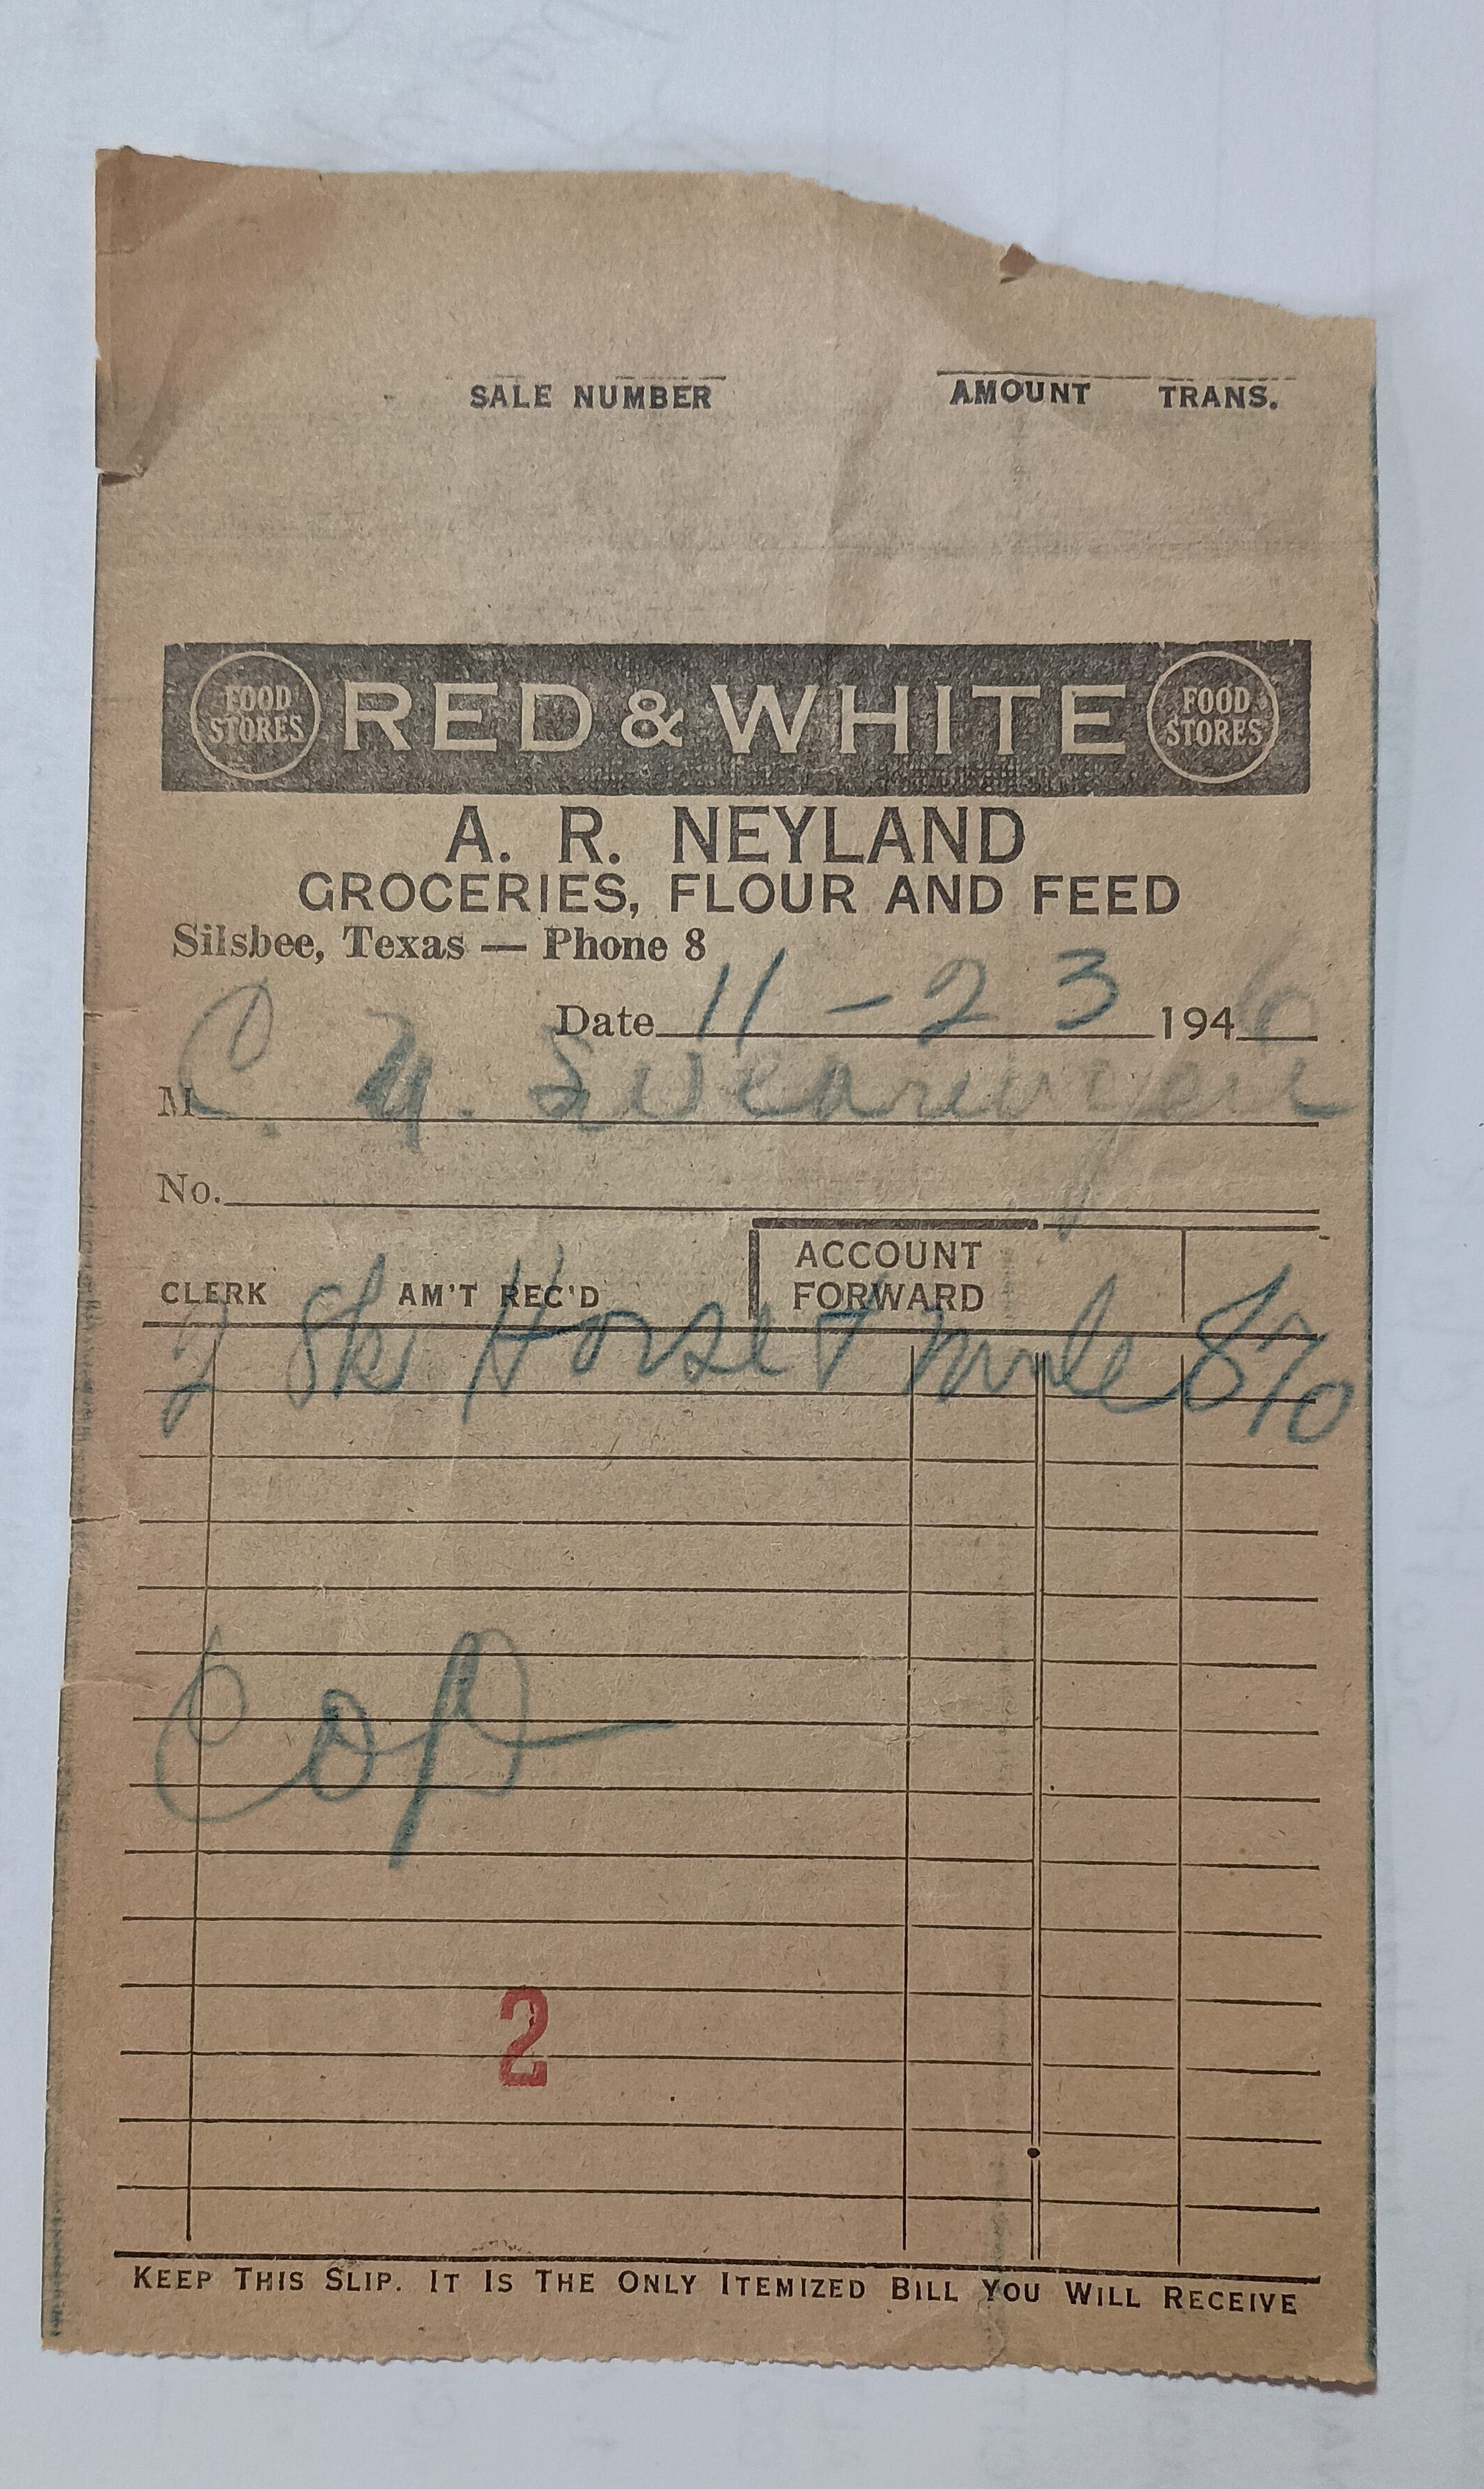 SALE NUMBER AMOUNT TRANS.
FOOD STORES RED & WHITE FOOD STORES
A. R. NEYLAND
GROCERIES, FLOUR AND FEED
Silsbee, Texas — Phone 8
Date 11-23 1946
M C. Swearingen
No.
ACCOUNT
CLERK AM'T REC'D FORWARD
2 Sks Horse & Mule 870
Cop
2
KEEP THIS SLIP. IT IS THE ONLY ITEMIZED BILL YOU WILL RECEIVE